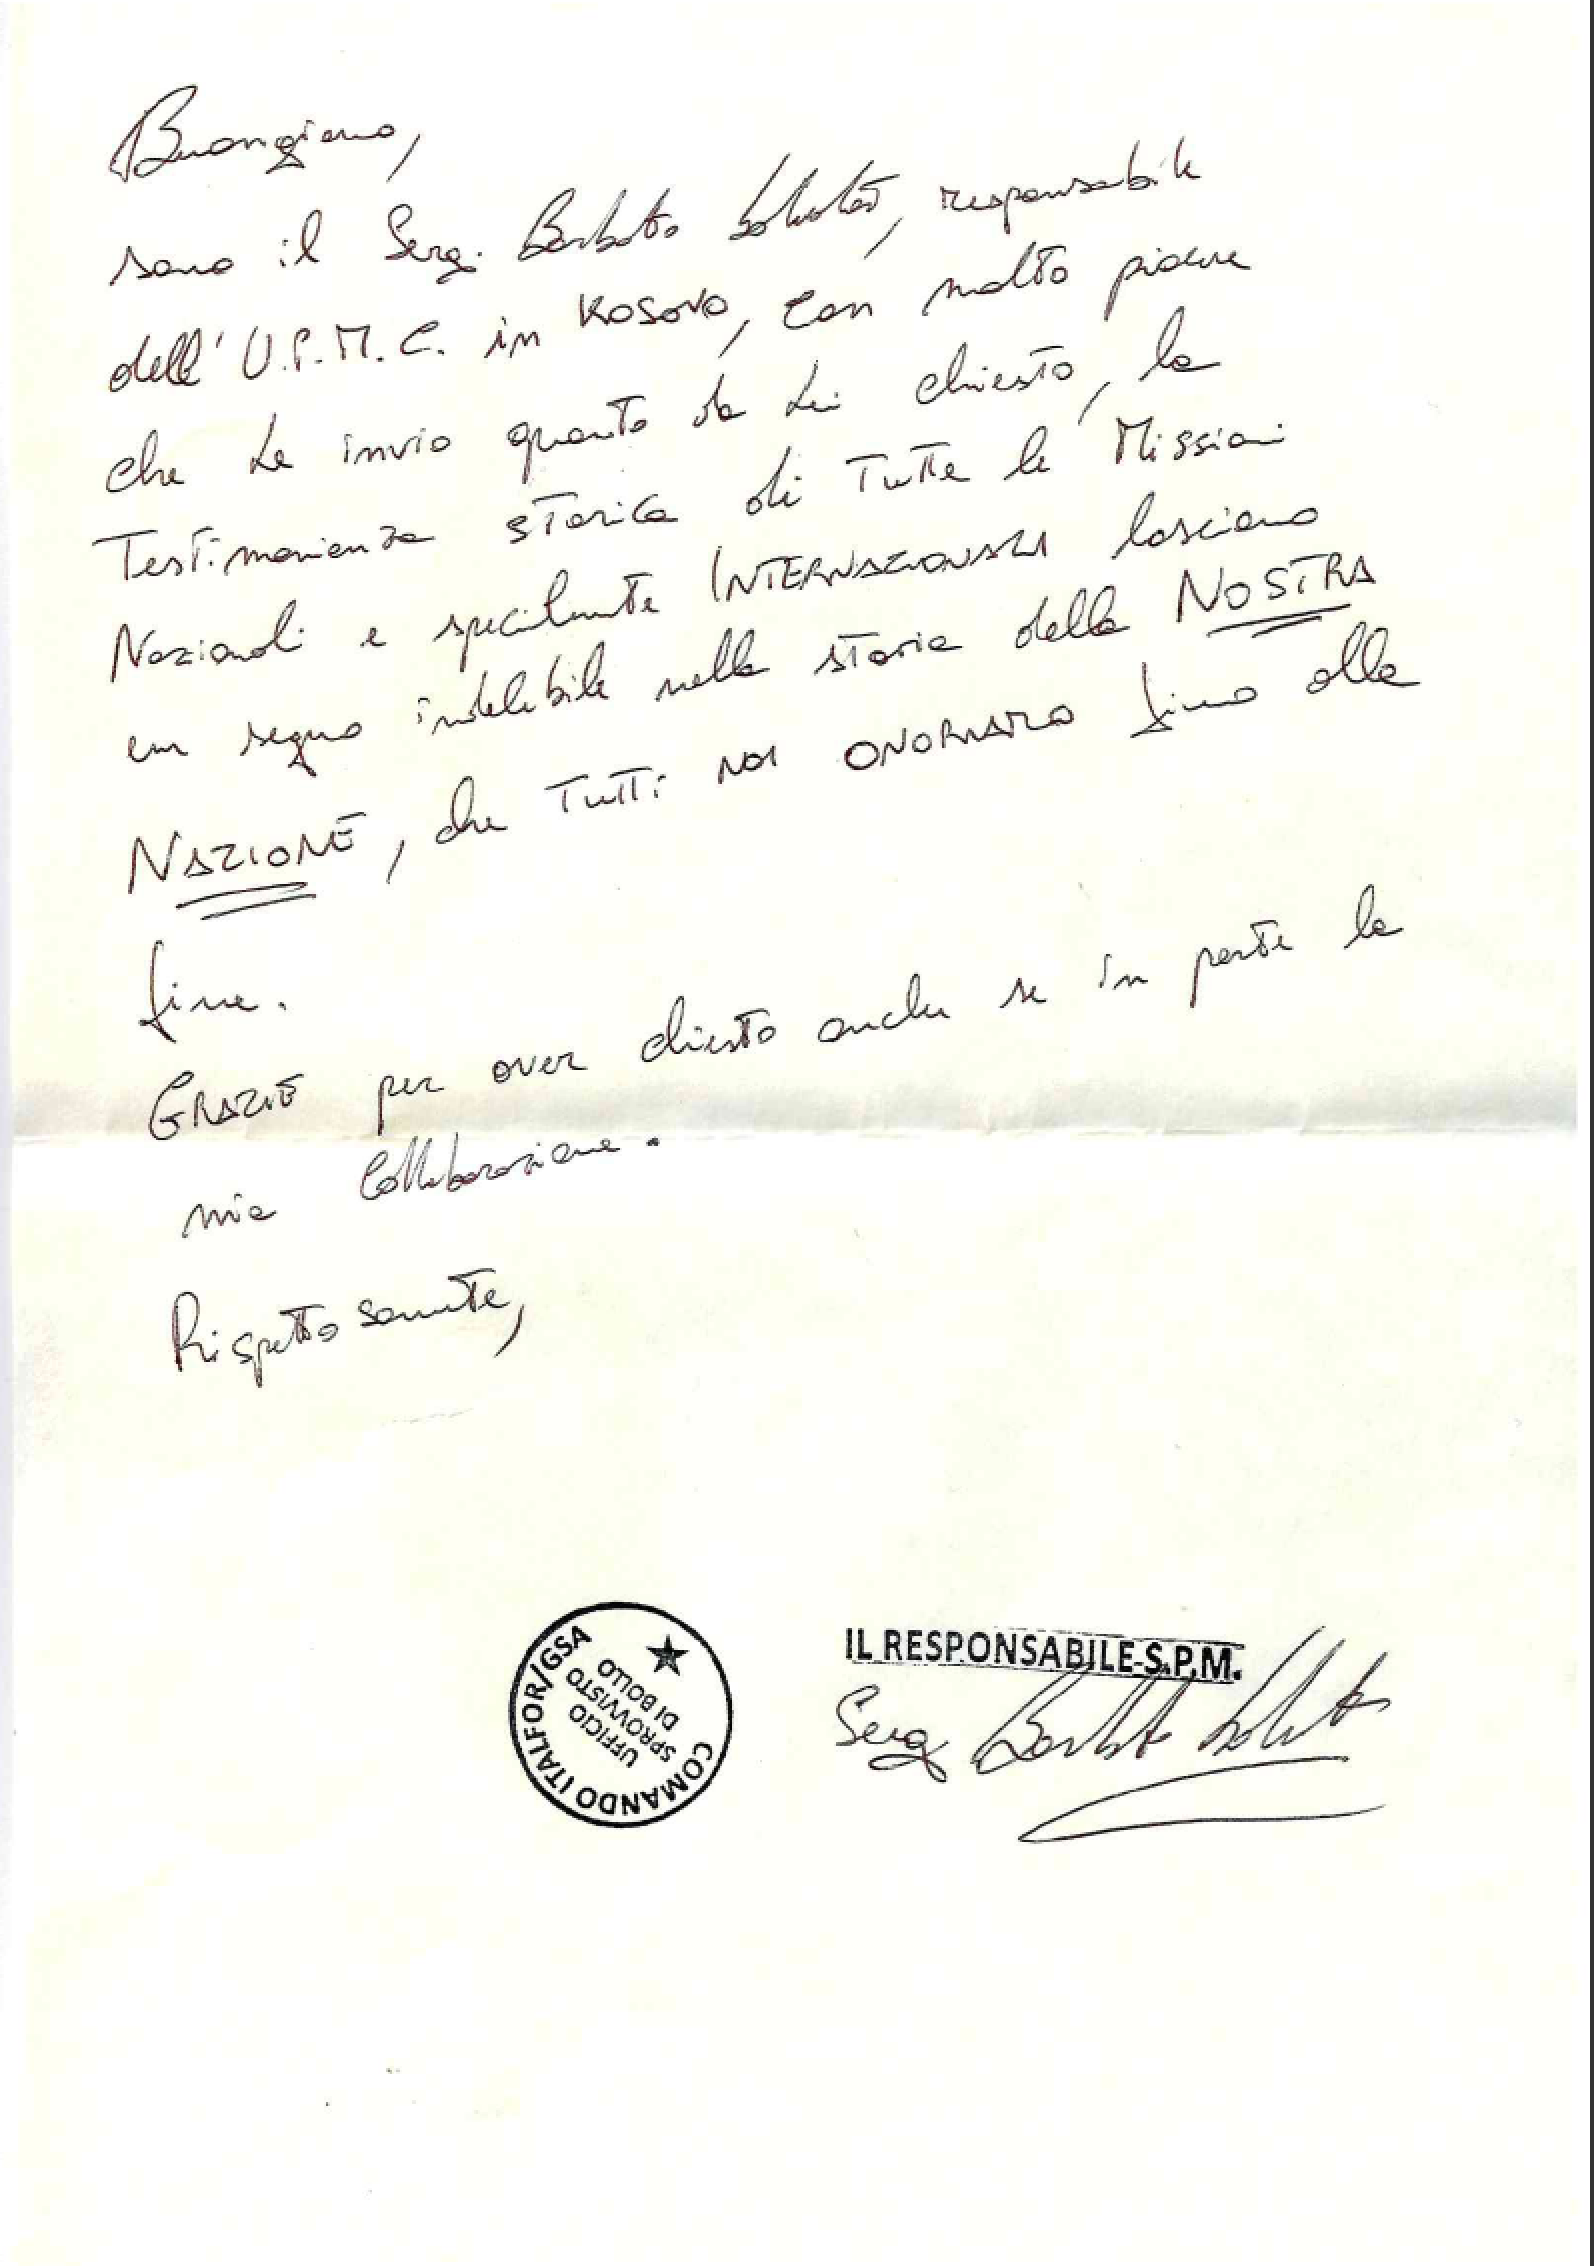 Buongiorno,
sono il Serg. Barbato Salvatore, responsabile
dell' U.P.M.C. in Kosovo, con molto piacere
che Le invio quanto da Lei chiesto, la
Testimonianza storica di Tutte le Missioni
Nazionali e specialmente INTERNAZIONALI lasciano
un segno indelebile nella storia della NOSTRA
NAZIONE, che TUTTI NOI ONORIAMO fino alla
fine.
GRAZIE per aver chiesto anche se in parte la
mia collaborazione.
Rispettosamente,
COMANDO ITALFOR/GSA
UFFICIO
SPROVVISTO
DI BOLLO
IL RESPONSABILE S.P.M.
Serg Barbato Salvatore